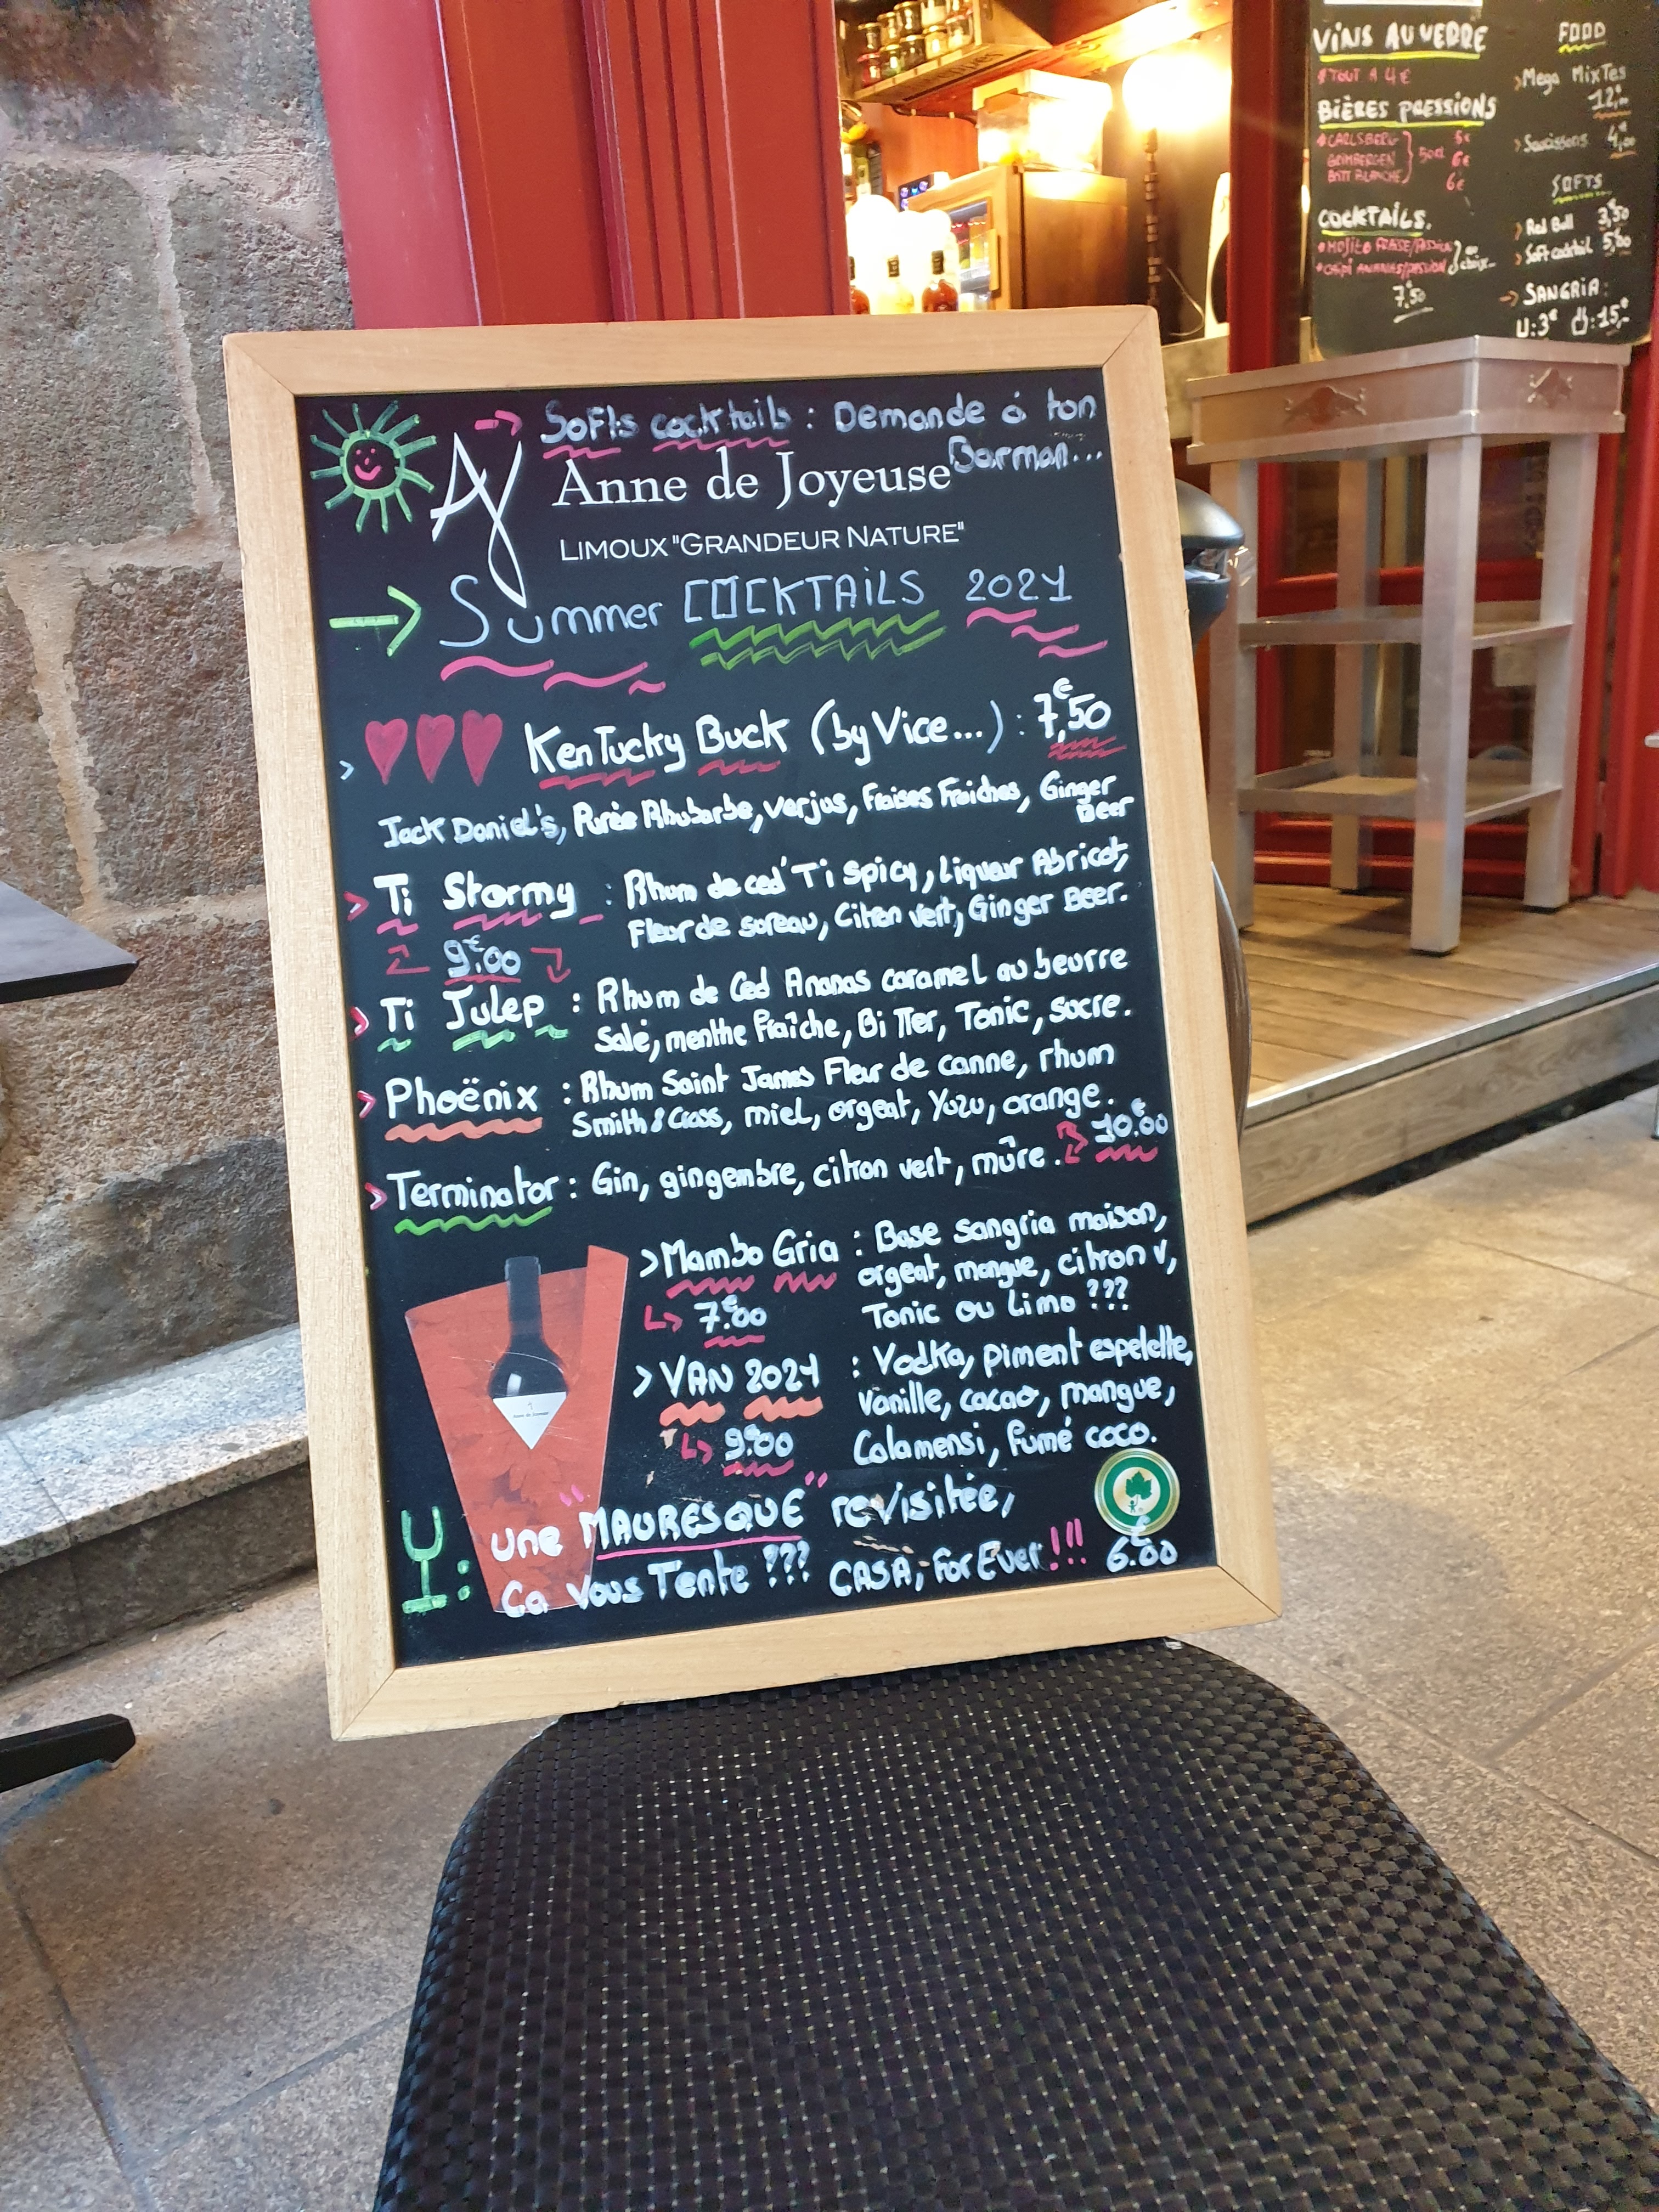 → Softs cocktails : Demande à ton
Barman...
AJ Anne de Joyeuse
LIMOUX "GRANDEUR NATURE"
→ Summer COCKTAILS 2021
> Kentucky Buck (by Vice...) : 7,€50
Jack Daniel's, Purée Rhubarbe, verjus, Fraises Fraîches, Ginger
Beer
> Ti Stormy : Rhum de ced' Ti spicy, Liqueur Abricot,
Fleur de sureau, Citron vert, Ginger Beer.
9.€00
> Ti Julep : Rhum de Ced Ananas caramel au beurre
Salé, menthe fraîche, BiTTer, Tonic, sucre.
> Phoënix : Rhum Saint James Fleur de canne, rhum
Smith & Cross, miel, orgeat, Yuzu, orange.
10.€00
> Terminator : Gin, gingembre, citron vert, mûre.
> Mambo Gria : Base sangria maison,
orgeat, mangue, citron v,
↳ 7.€00 Tonic ou Limo ???
> VAN 2021 : Vodka, piment espelette,
Vanille, cacao, mangue,
↳ 9.€00 Calamensi, fumé coco.
une "MAURESQUE" revisitée,
Ca Vous Tente ??? CASA, For Ever !!! 6.€00
VINS AU VERRE
TOUT A 4€
BIÈRES PRESSIONS
CARLSBERG 5€
GRIMBERGEN 50cl 6€
BATT BLANCHE 6€
COCKTAILS.
MOJITO FRAISE/PASSION au
CAIPI ANANAS/PASSION choix...
7,€50
FOOD
> Mega MixTes
12,€
> Saucissons 4,€00
SOFTS
> Red Bull 3,€50
> Soft cocktail 5,€00
→ SANGRIA:
3€ 15,€